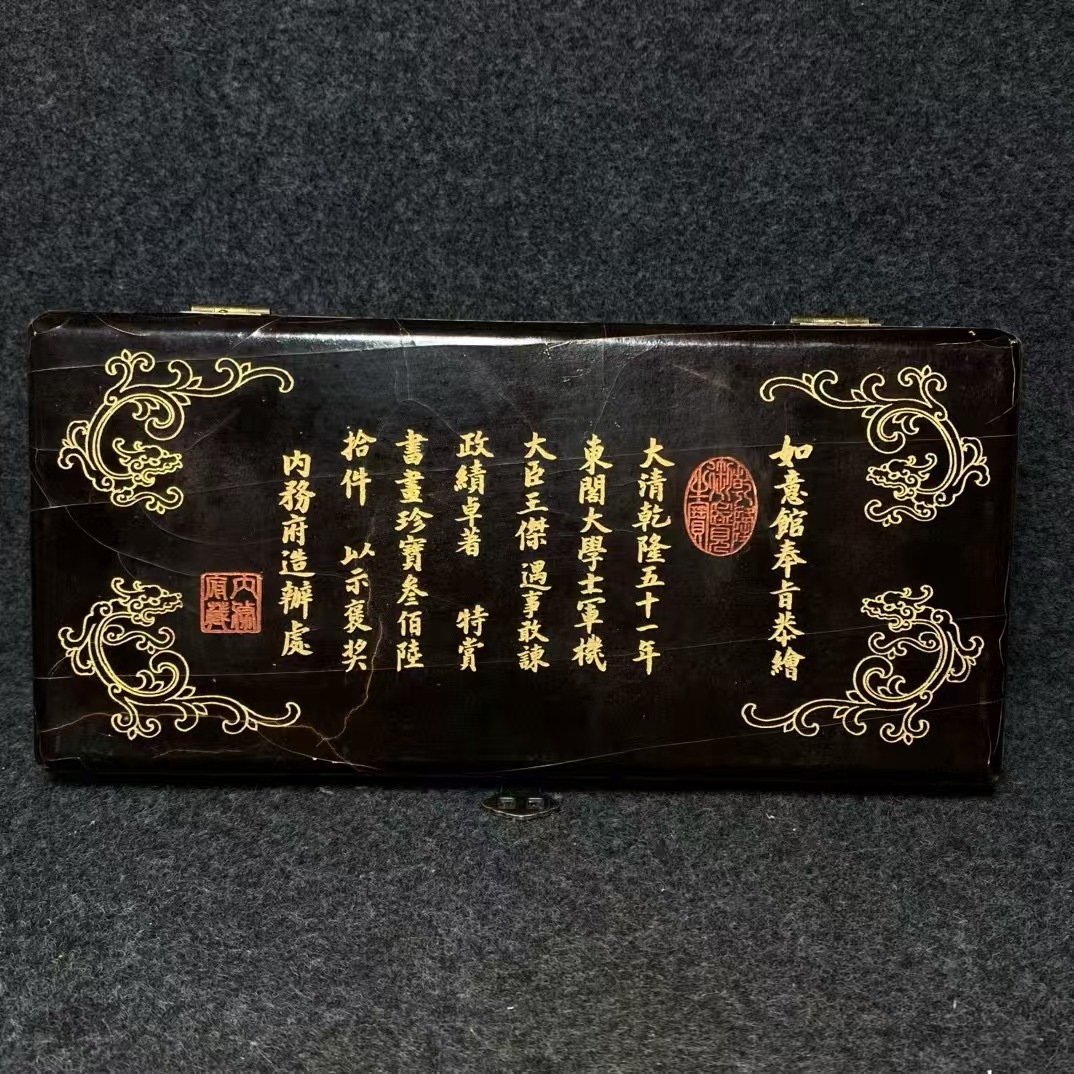 如意館奉旨恭繪
乾隆御覽之寶
大清乾隆五十一年
東閣大學士軍機
大臣王傑 遇事敢諫
政績卓著 特賞
書畫珍寶叁佰陸
拾件 以示褒奖
内務府造辦處
内務府藏